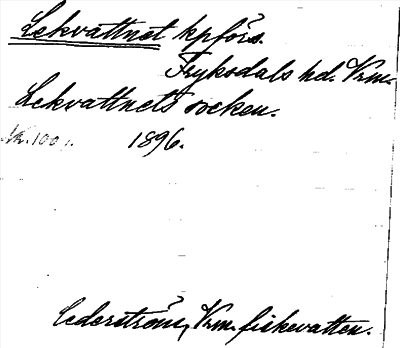 Lekvattnet kpförs.
Fryksdals hd. Vrm.
Lekvattnets socken.
1896.
Cederström, Vrm. fiskevatten.